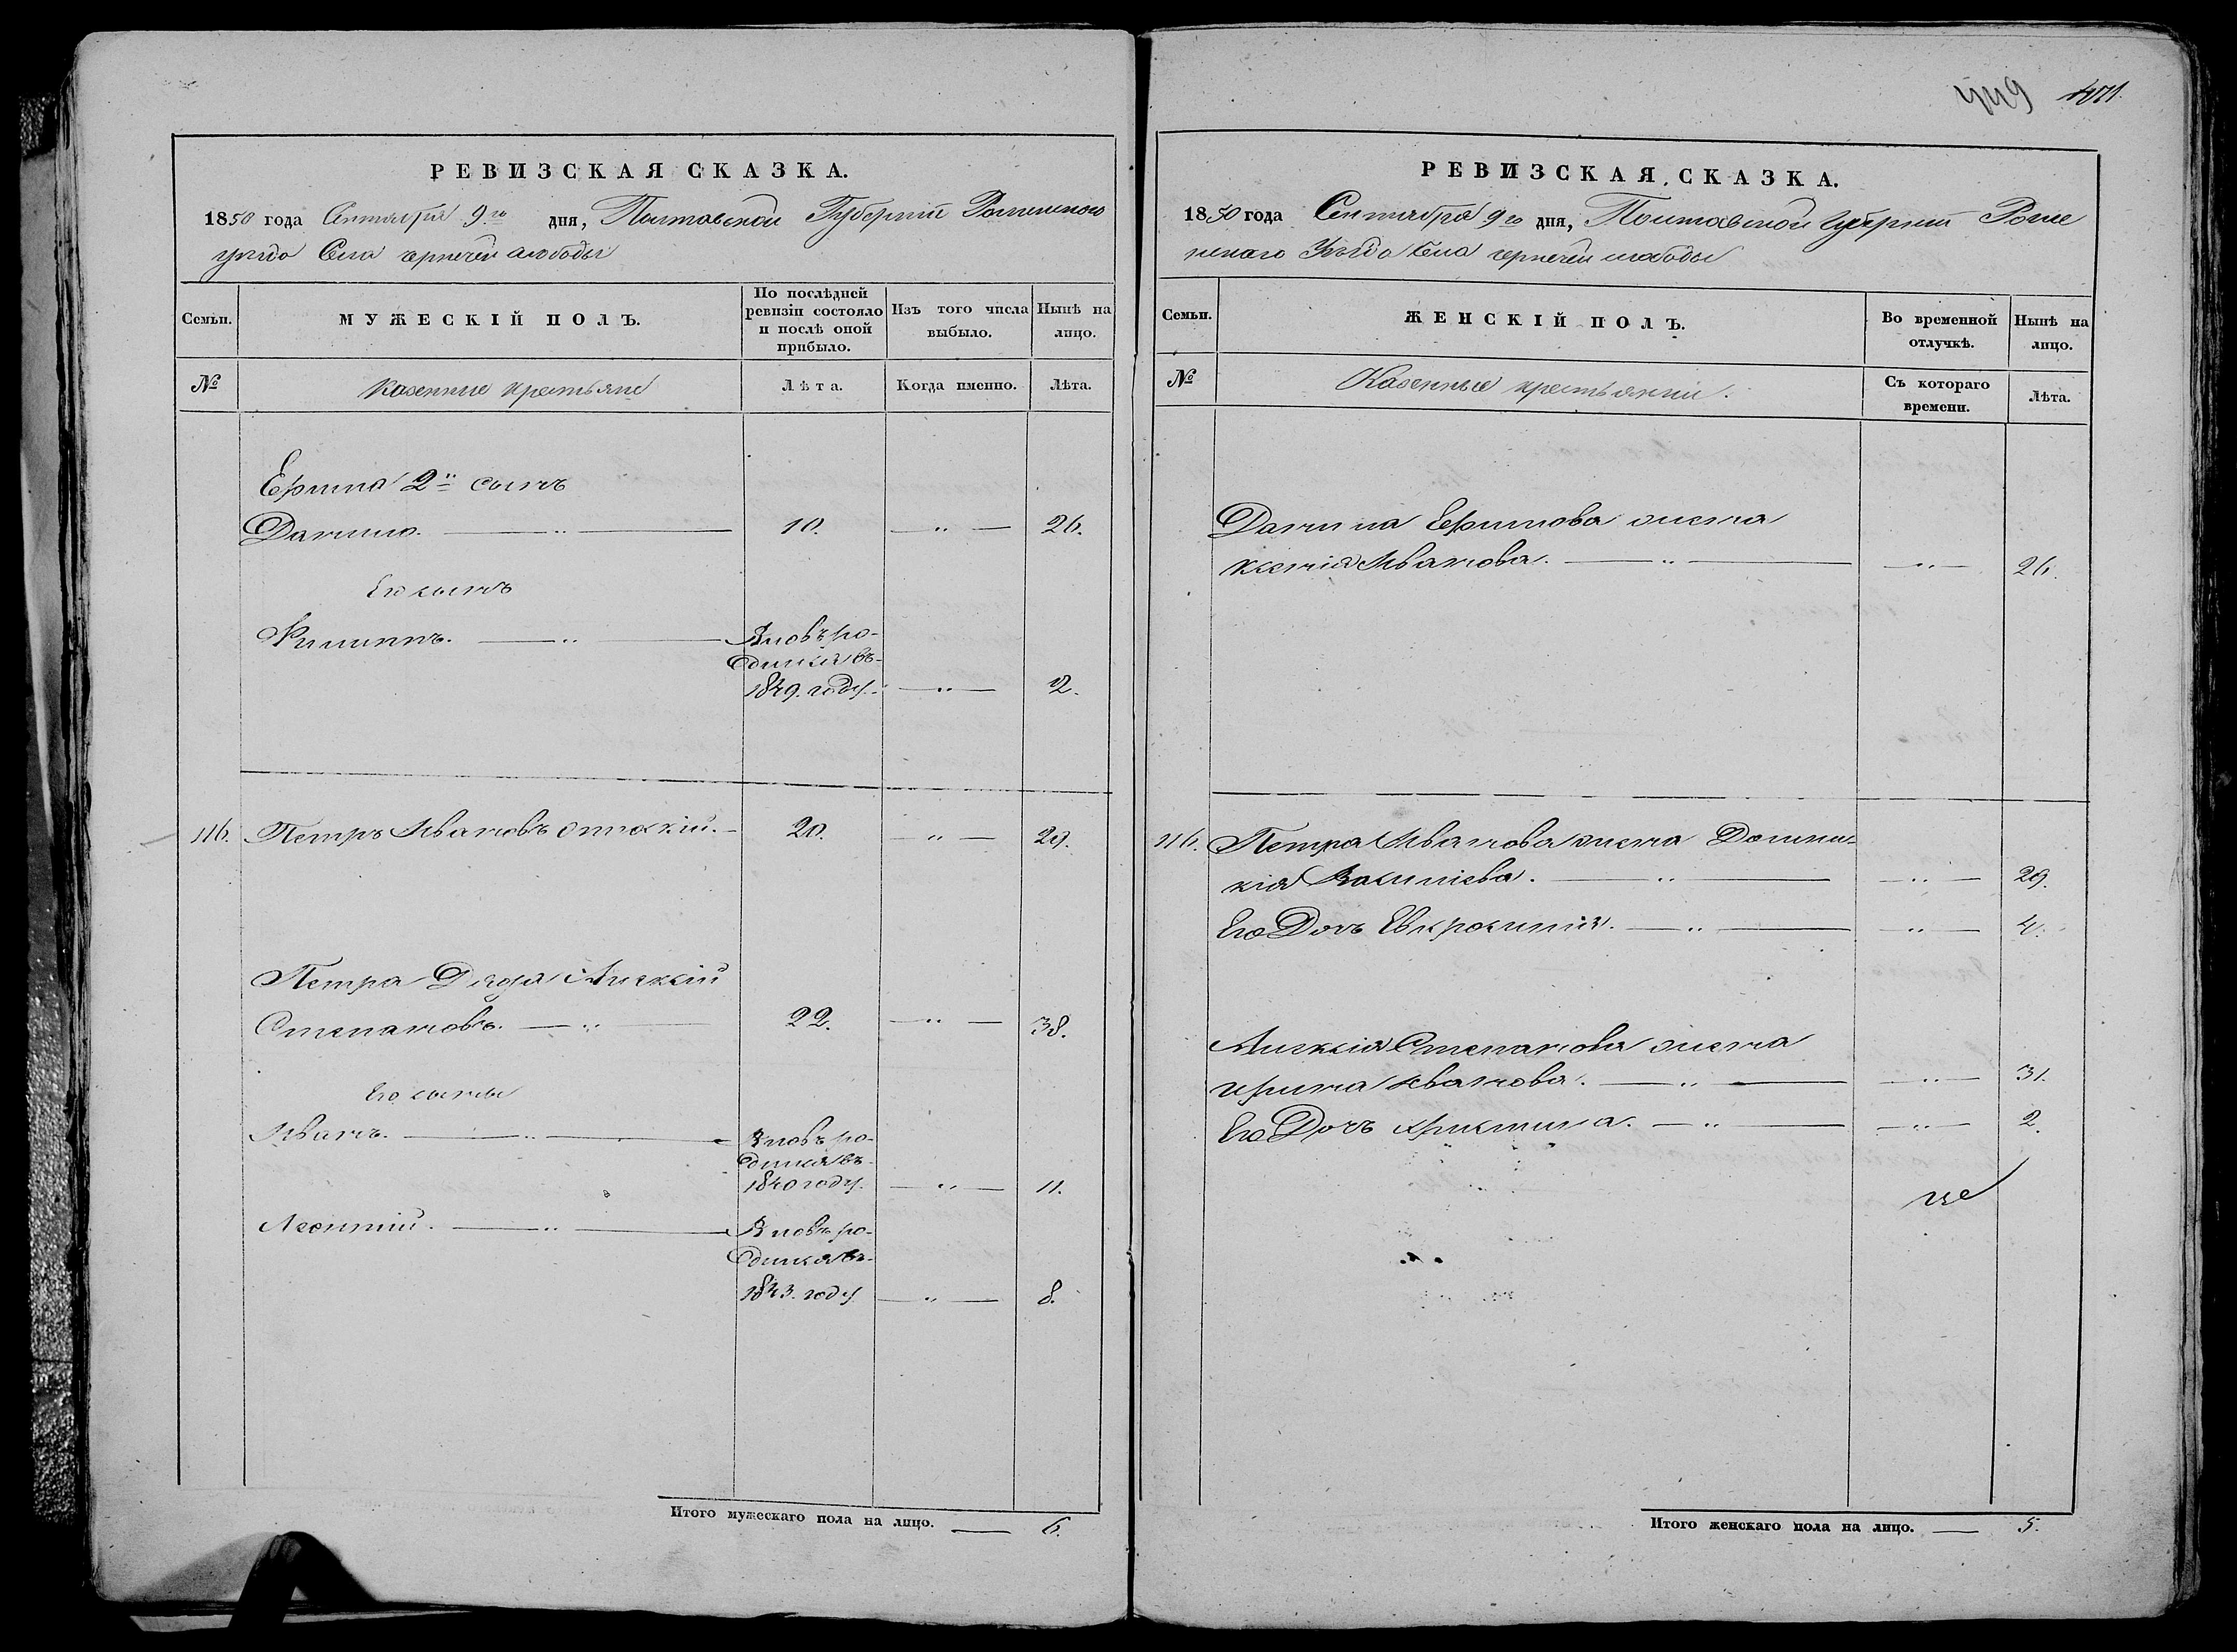 РЕВИЗСКАЯ СКАЗКА.
1850 года Сентября 9го дня, Полтавской Губерніи Роменского
уезда Села черпечей слободы
Семьи.
МУЖЕСКІЙ ПОЛЪ.
По послѣдней ревизіи состояло и послѣ оной прибыло.
Изъ того числа выбыло.
Нынѣ на лицо.
№
Казенные крестьяне
Лѣта.
Когда именно.
Лѣта.
Ефима 2й сынъ
Данило. — „ — 10. — „ — 26.
Его сынъ
Филиппъ. — „ — Вновь ро-
дился въ
1849. году. — „ — 2.
116. Петръ Ивановъ — 20. — „ — 29.
Петра Дядя Алексій
Степановъ. — „ — 22. — „ — 38.
Его сыны
Иванъ. — „ — Вновь ро-
дился въ
1840 году. — „ — 11.
Леонтій. — „ — Вновь ро-
дился въ
1843. году — „ — 8.
Итого мужескаго пола на лицо. — 6.
471.
РЕВИЗСКАЯ СКАЗКА.
1850 года Сентября 9го дня, Полтавской Губерніи Роме
нскаго Уезда Села черпечей слободы
Семьи.
ЖЕНСКІЙ ПОЛЪ.
Во временной отлучкѣ.
Нынѣ на лицо.
№
Казенные крестьянки.
Съ котораго времени.
Лѣта.
Данила Ефимова жена
Ксенія Иванова. — „ — — „ — 26.
116. Петра Иванова жена Домни-
кія Василіева. — „ — — „ — 29.
Его Дочь Евфросинія. — „ — — „ — 4.
Алексія Степанова жена
Ирина Иванова. — „ — — „ — 31.
Его Дочь Христина. — „ — — „ — 2.
Итого женскаго пола на лицо. — 5.